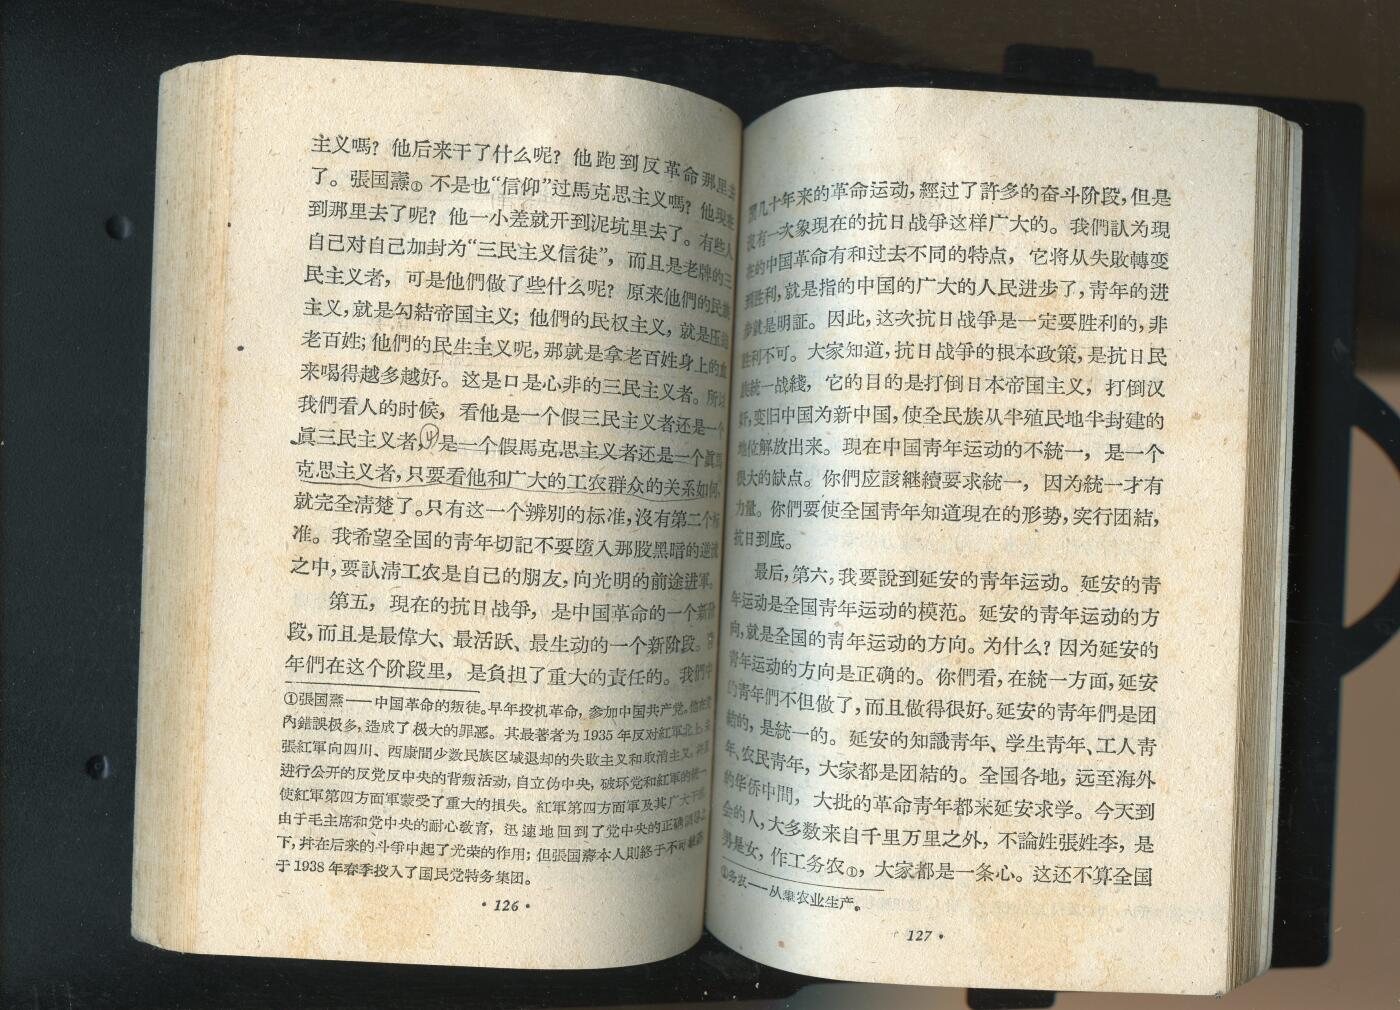 主义嗎？他后来干了什么呢？他跑到反革命那里去
了。張国燾① 不是也“信仰”过馬克思主义嗎？他現在
到那里去了呢？他一小差就开到泥坑里去了。有些人
自己对自己加封为“三民主义信徒”，而且是老牌的三
民主义者，可是他們做了些什么呢？原来他們的民族
主义，就是勾結帝国主义；他們的民权主义，就是压迫
老百姓；他們的民生主义呢，那就是拿老百姓身上的血
来喝得越多越好。这是口是心非的三民主义者。所以
我們看人的时候，看他是一个假三民主义者还是一个
眞三民主义者，是一个假馬克思主义者还是一个眞馬
克思主义者，只要看他和广大的工农群众的关系如何，
就完全淸楚了。只有这一个辨别的标准，沒有第二个标
准。我希望全国的靑年切記不要墮入那股黑暗的逆流
之中，要認淸工农是自己的朋友，向光明的前途进軍。
第五，現在的抗日战爭，是中国革命的一个新阶
段，而且是最偉大、最活跃、最生动的一个新阶段。靑
年們在这个阶段里，是負担了重大的責任的。我們中
①張国燾——中国革命的叛徒。早年投机革命，参加中国共产党。他在党
內錯誤极多，造成了极大的罪恶。其最著者为1935年反对紅軍北上，主
張紅軍向四川、西康間少数民族区域退却的失敗主义和取消主义，
进行公开的反党反中央的背叛活动，自立伪中央，破坏党和紅軍的統一，
使紅軍第四方面軍蒙受了重大的損失。紅軍第四方面軍及其广大干部，
由于毛主席和党中央的耐心敎育，迅速地回到了党中央的正确領导之
下，幷在后来的斗爭中起了光荣的作用；但張国燾本人則終于不可
于1938年春季投入了国民党特务集团。
• 126 •
国几十年来的革命运动，經过了許多的奋斗阶段，但是
沒有一次象現在的抗日战爭这样广大的。我們認为現
在的中国革命有和过去不同的特点，它将从失敗轉变
到胜利，就是指的中国的广大的人民进步了，靑年的进
步就是明証。因此，这次抗日战爭是一定要胜利的，非
胜利不可。大家知道，抗日战爭的根本政策，是抗日民
族統一战綫，它的目的是打倒日本帝国主义，打倒汉
奸，变旧中国为新中国，使全民族从半殖民地半封建的
地位解放出来。現在中国靑年运动的不統一，是一个
很大的缺点。你們应該継續要求統一，因为統一才有
力量。你們要使全国靑年知道現在的形势，实行团結，
抗日到底。
最后，第六，我要說到延安的靑年运动。延安的靑
年运动是全国靑年运动的模范。延安的靑年运动的方
向，就是全国的靑年运动的方向。为什么？因为延安的
靑年运动的方向是正确的。你們看，在統一方面，延安
的靑年們不但做了，而且做得很好。延安的靑年們是团
結的，是統一的。延安的知識靑年、学生靑年、工人靑
年、农民靑年，大家都是团結的。全国各地，远至海外
的华侨中間，大批的革命靑年都来延安求学。今天到
会的人，大多数来自千里万里之外，不論姓張姓李，是
男是女，作工务农①，大家都是一条心。这还不算全国
①务农——从事农业生产。
127 •